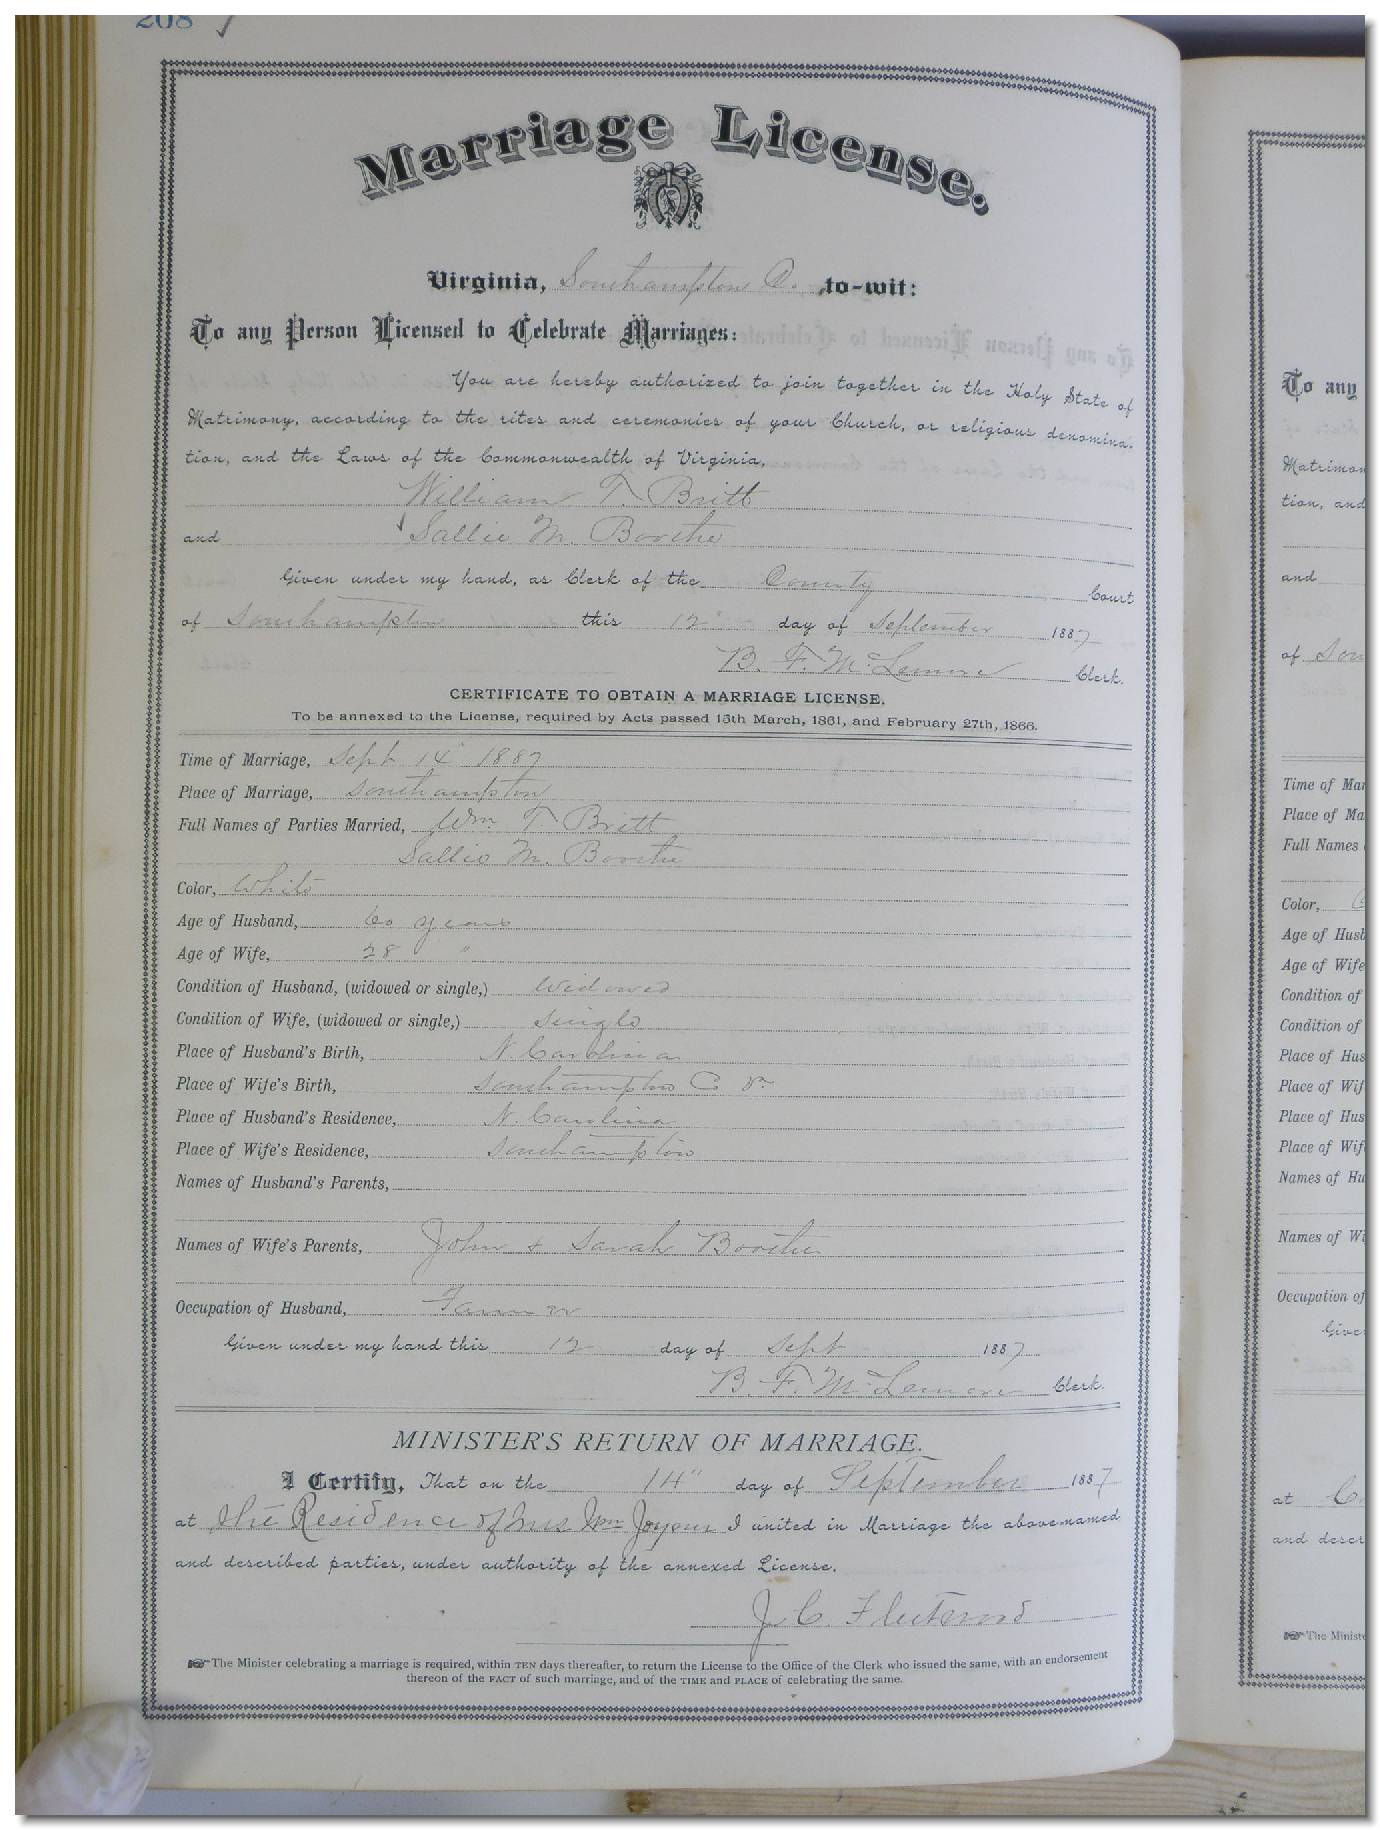 208
Marriage License.
Virginia, Southampton Co. to-wit:
To any Person Licensed to Celebrate Marriages:
You are hereby authorized to join together in the Holy State of
Matrimony, according to the rites and ceremonies of your Church, or religious denomina-
tion, and the Laws of the Commonwealth of Virginia,
William T. Britt
and Sallie M. Boothe
Given under my hand, as Clerk of the County Court
of Southampton this 12" day of September 1887
B. F. McLemore Clerk.
CERTIFICATE TO OBTAIN A MARRIAGE LICENSE.
To be annexed to the License, required by Acts passed 15th March, 1861, and February 27th, 1866.
Time of Marriage, Sept 14" 1887
Place of Marriage, Southampton
Full Names of Parties Married, Wm. T Britt
Sallie M. Boothe
Color, White
Age of Husband, 60 years
Age of Wife, 28 "
Condition of Husband, (widowed or single,) Widowed
Condition of Wife, (widowed or single,) Single
Place of Husband's Birth, N. Carolina
Place of Wife's Birth, Southampton Co Va
Place of Husband's Residence, N. Carolina
Place of Wife's Residence, Southampton
Names of Husband's Parents,
Names of Wife's Parents, John & Sarah Boothe
Occupation of Husband, Farmer
Given under my hand this 12 day of Sept 1887
B. F. McLemore Clerk.
MINISTER'S RETURN OF MARRIAGE.
I Certify, That on the 14" day of September 1887
at the Residence of Mrs Wm Joyner I united in Marriage the above-named
and described parties, under authority of the annexed License.
J. C. Fleetwood
The Minister celebrating a marriage is required, within TEN days thereafter, to return the License to the Office of the Clerk who issued the same, with an endorsement
thereon of the FACT of such marriage, and of the TIME and PLACE of celebrating the same.
To any
Matrimon
tion, and
and
of Sou
Time of Mar
Place of Ma
Full Names
Color,
Age of Husb
Age of Wife
Condition of
Condition of
Place of Hus
Place of Wif
Place of Hus
Place of Wif
Names of Hu
Names of Wi
Occupation of
Give
at
and descr
The Ministe